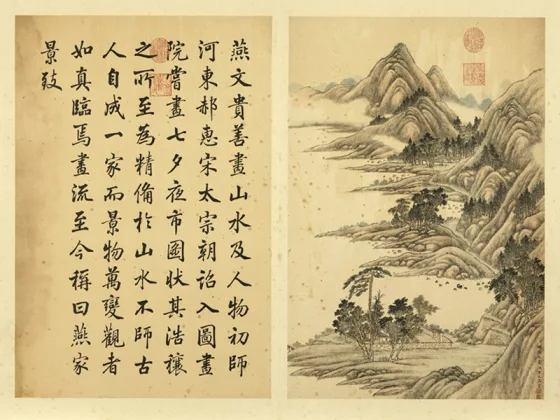 燕文貴善畫山水及人物初師
河東郝惠宋太宗朝詔入圖畫
院嘗畫七夕夜市圖狀其浩穰
之所至為精備於山水不師古
人自成一家而景物萬變觀者
如真臨焉畫流至今稱曰燕家
景致